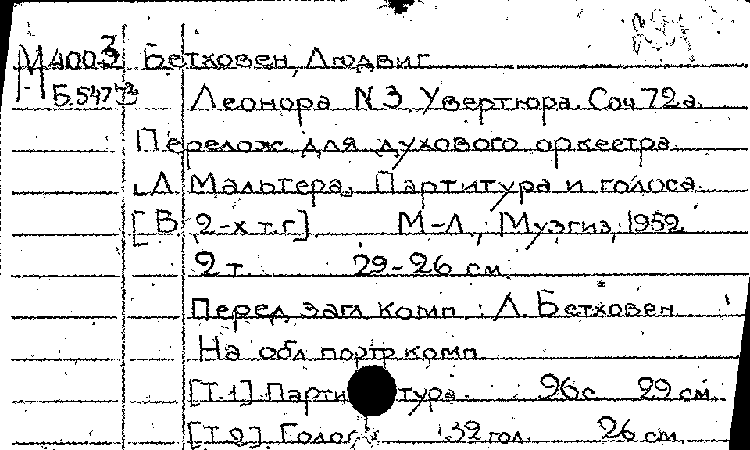 М 4003 Бетховен, Людвиг
Б547 Леонора N 3 Увертюра. Соч 72а.
Перелож для духового оркестра
Л. Мальтера. Партитура и голоса
[В 2-х т.г] М-Л., Музгиз, 1952
2 т. 29-26 см
Перед загл комп : Л. Бетховен
На обл портр комп
[Т.1] Партитура. 96 с 29 см.
[Т.2]. Голоса 32 гол. 26 см.